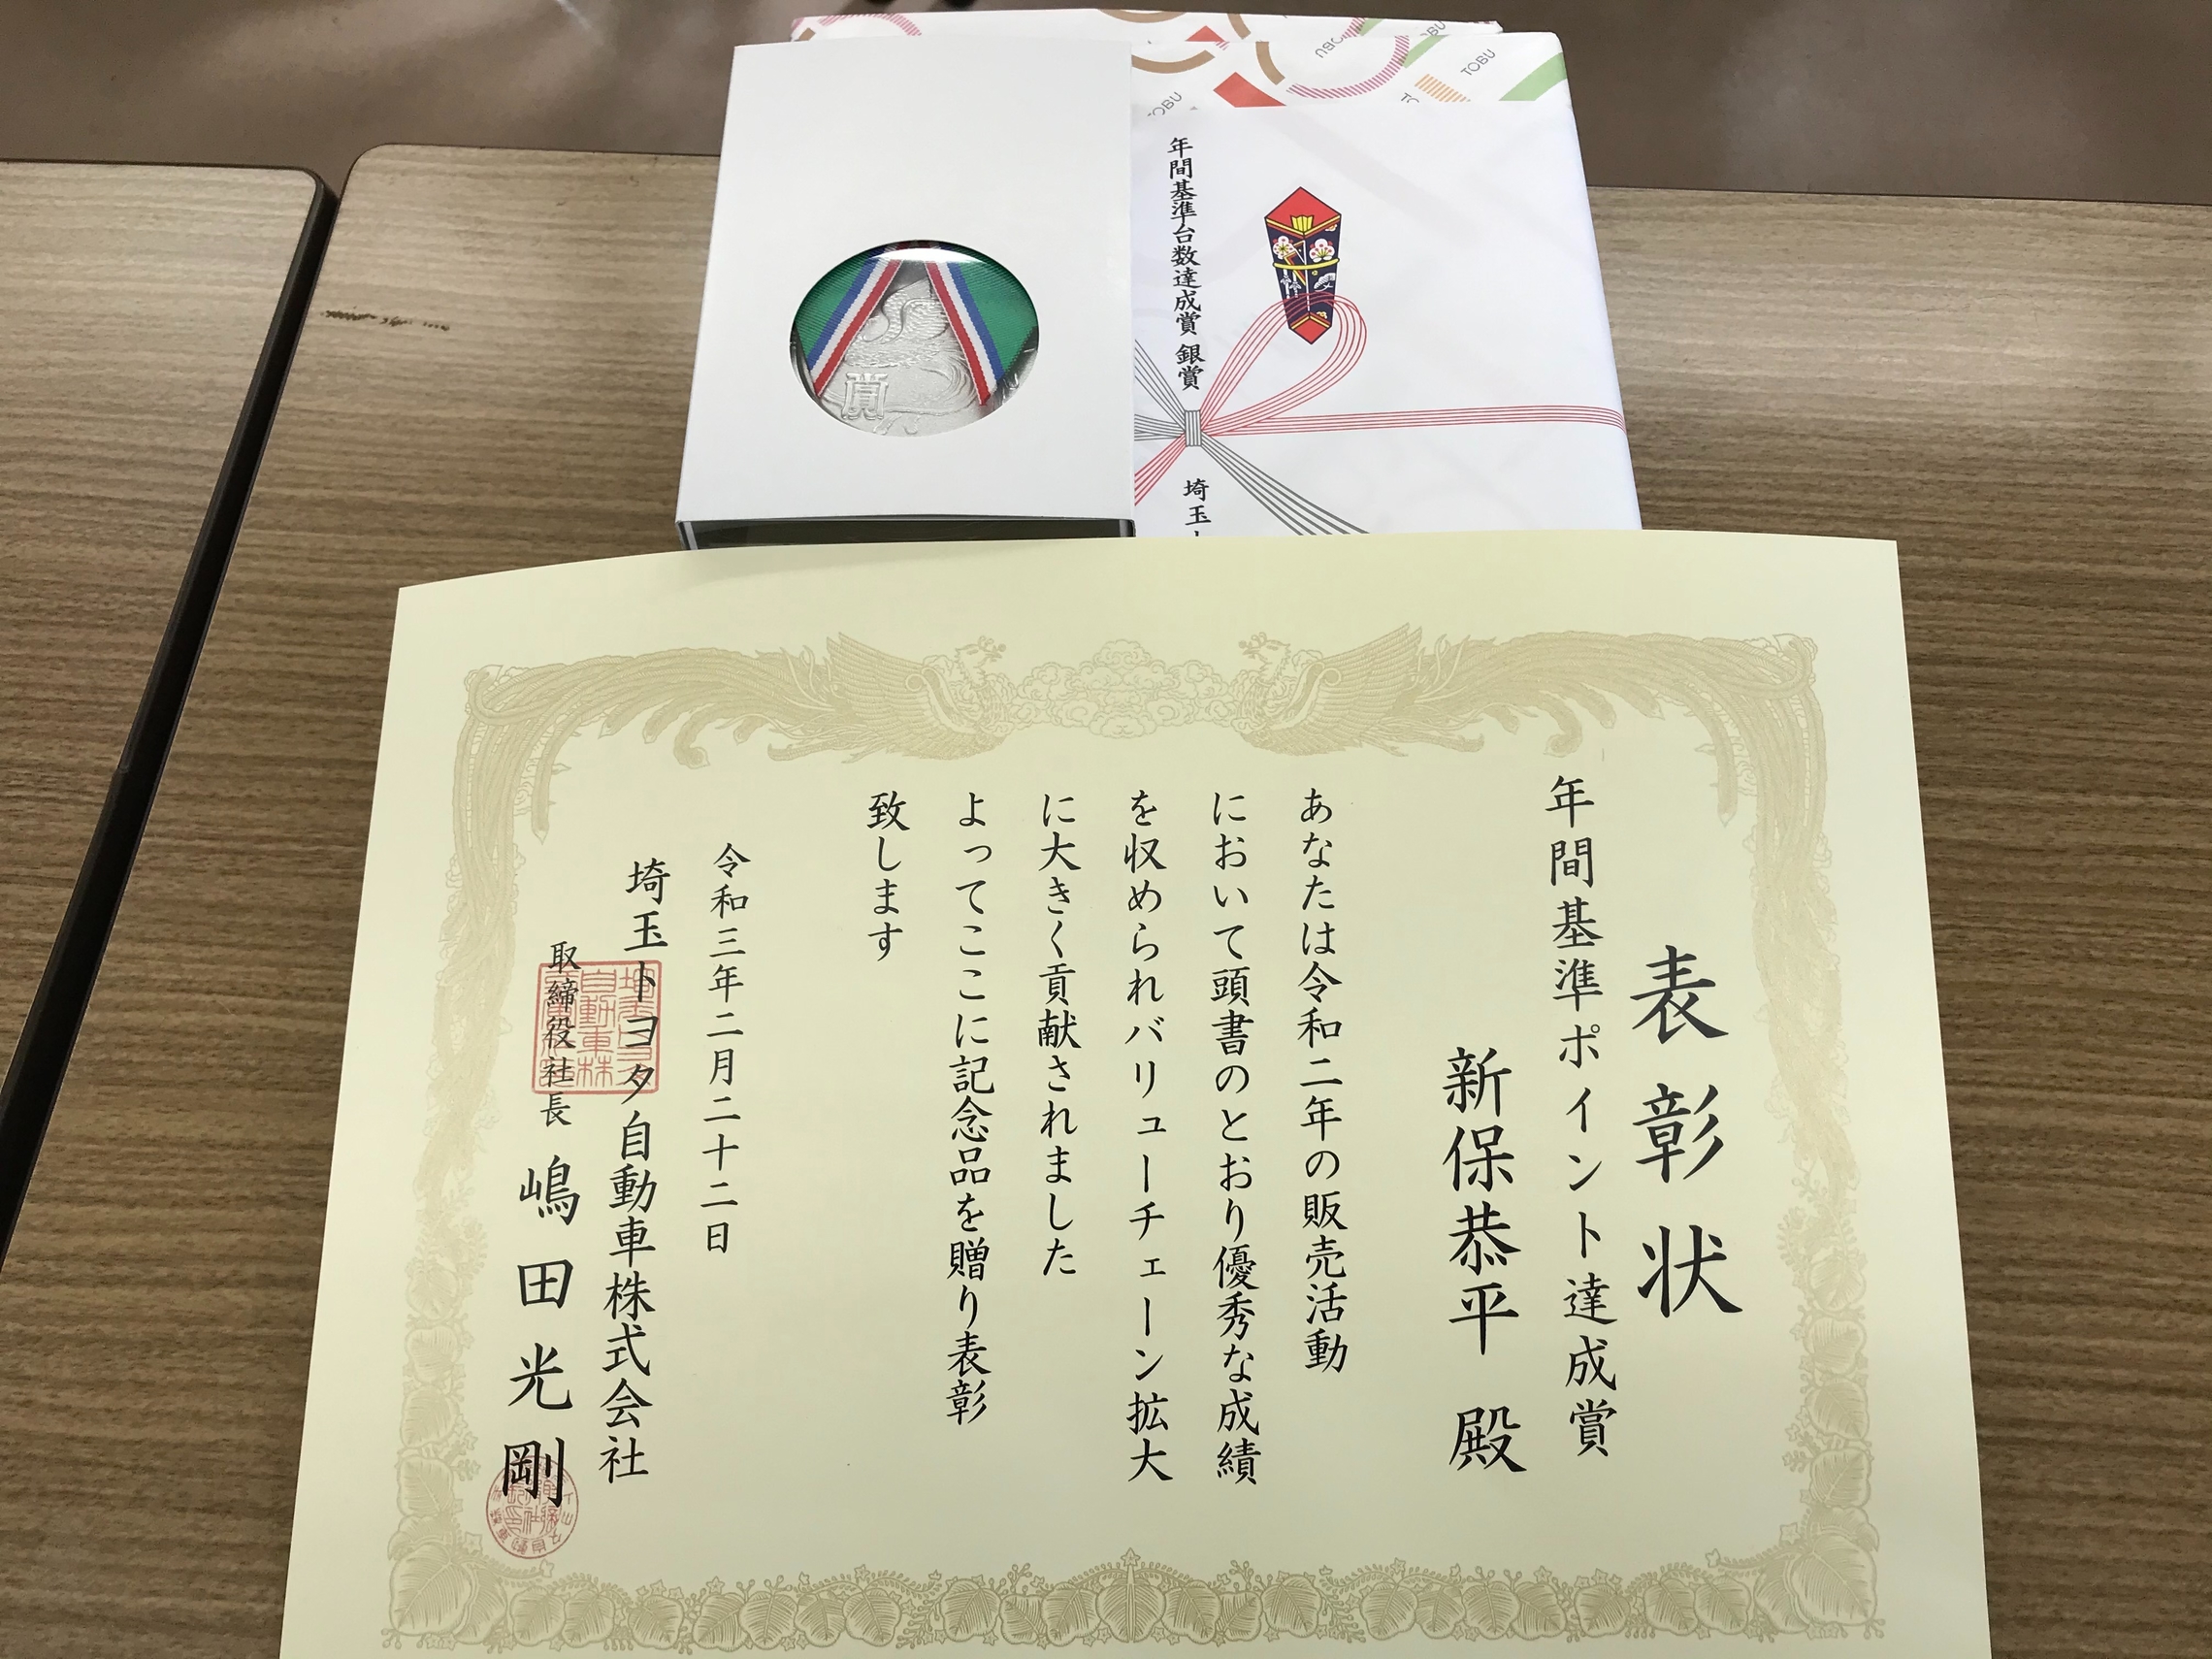 TOBU
TOBU
TOBU
年間基準台数達成賞 銀賞
埼玉
賞
表彰状
年間基準ポイント達成賞
新保恭平 殿
あなたは令和二年の販売活動
において頭書のとおり優秀な成績
を収められバリューチェーン拡大
に大きく貢献されました
よってここに記念品を贈り表彰
致します
令和三年二月二十二日
埼玉トヨタ自動車株式会社
取締役社長 嶋田光剛